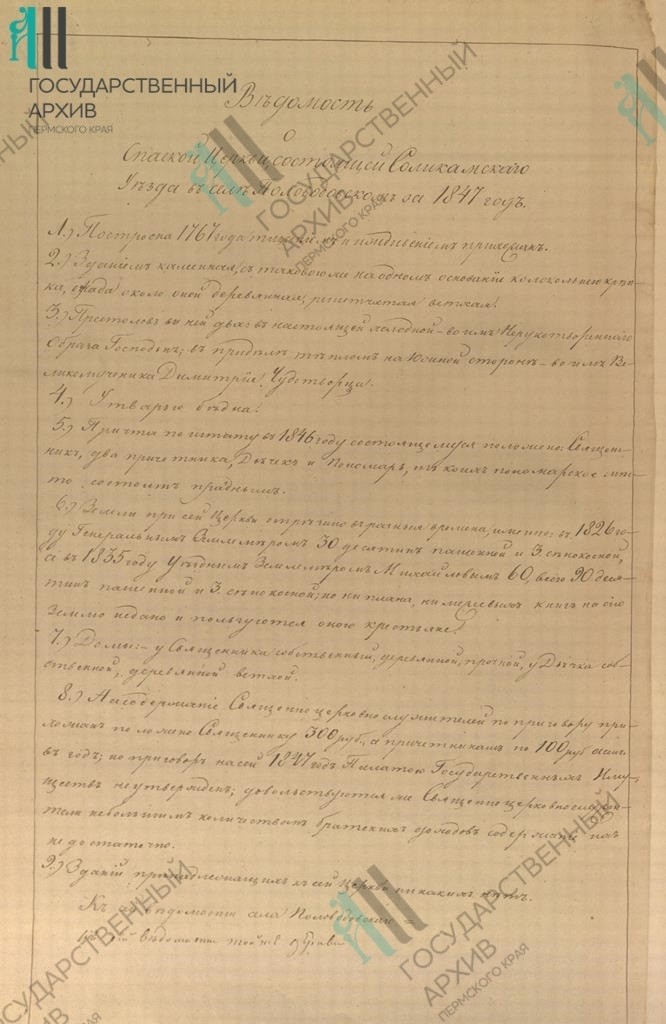 ГОСУДАРСТВЕННЫЙ
АРХИВ
ПЕРМСКОГО КРАЯ
Вѣдомость
о
Спаской Церкви состоящей Соликамскаго
Уѣзда въ селѣ Половодовскомъ за 1847 годъ.
1.) Построена 1767 года тщаніемъ и прихожанъ.
2.) Зданіемъ каменная, съ таковою же на одномъ основаніи колокольнею крѣп-
ка, ограда около оной деревянная, решетчатая ветхая.
3.) Престоловъ въ ней два: въ настоящей холодной – во имя Нерукотвореннаго
Образа Господня; въ придѣлѣ тепломъ на Южной сторонѣ – во имя Ве-
ликомученика Димитрія Чудотворца.
4.) Утварью бѣдна.
5.) Причта по штату въ 1846 году состоящемуся положено: Священ-
никъ, два причетника, Дьячекъ и Пономарь, изъ коихъ пономарское мѣс-
то состоитъ празднымъ.
6.) Земли при сей Церкви отрѣзано въ разныя времена, именно: въ 1826 го-
ду Генеральнымъ Землемѣромъ 30 десятинъ пашенной и 3. сѣнокосной,
а въ 1835 году Уѣзднымъ Землемѣромъ Михайловымъ 60, всего 90 деся-
тинъ пашенной и 3. сѣнокосной; но ни плана, ни межевыхъ книгъ на сію
Землю не дано и пользуются оною крестьяне.
7.) Домы: – у Священника собственный, деревянной, прочной, у Дьячка соб-
ственной, деревянной ветхой.
8.) На содержаніе Священно церковнослужителей по приговору при-
хожанъ положено Священнику 300 руб., а причетникамъ по 100 руб.
въ годъ; но приговоръ на сей 1847 годъ Палатою Государственныхъ Иму-
ществъ не утвержденъ; довольствуются же Священно церковнослужи-
тели небольшимъ количествомъ братскихъ доходовъ содержаніе ихъ
не достаточно.
9.) Зданій принадлежащихъ къ сей Церкви никакихъ нѣтъ.
Къ сей вѣдомости села Половодовскаго
ГОСУДАРСТВЕННЫЙ
АРХИВ
ПЕРМСКОГО КРАЯ
ГОСУДАРСТВЕННЫЙ
АРХИВ
ПЕРМСКОГО КРАЯ